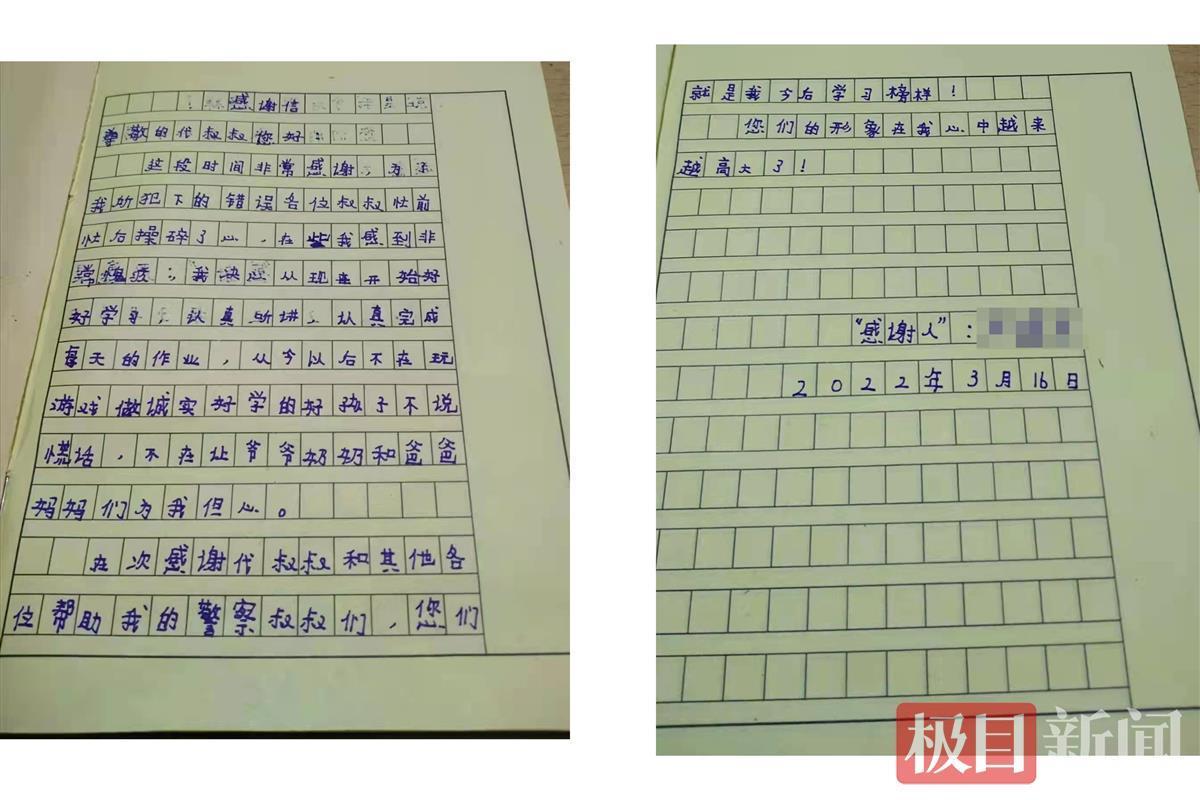 感谢信
尊敬的代叔叔您好！
这段时间非常感谢，为了
我所犯下的错误各位叔叔忙前
忙后操碎了心，在些我感到非
常愧疲；我决心从现在开始好
好学习，认真听讲，认真完成
每天的作业，从今以后不在玩
游戏做诚实好学的好孩子不说
慌话，不在让爷爷奶奶和爸爸
妈妈们为我但心。
在次感谢代叔叔和其他各
位帮助我的警察叔叔们，您们
就是我今后学习榜样！
您们的形象在我心中越来
越高大了！
“感谢人”：
2022年3月16日
极目新闻